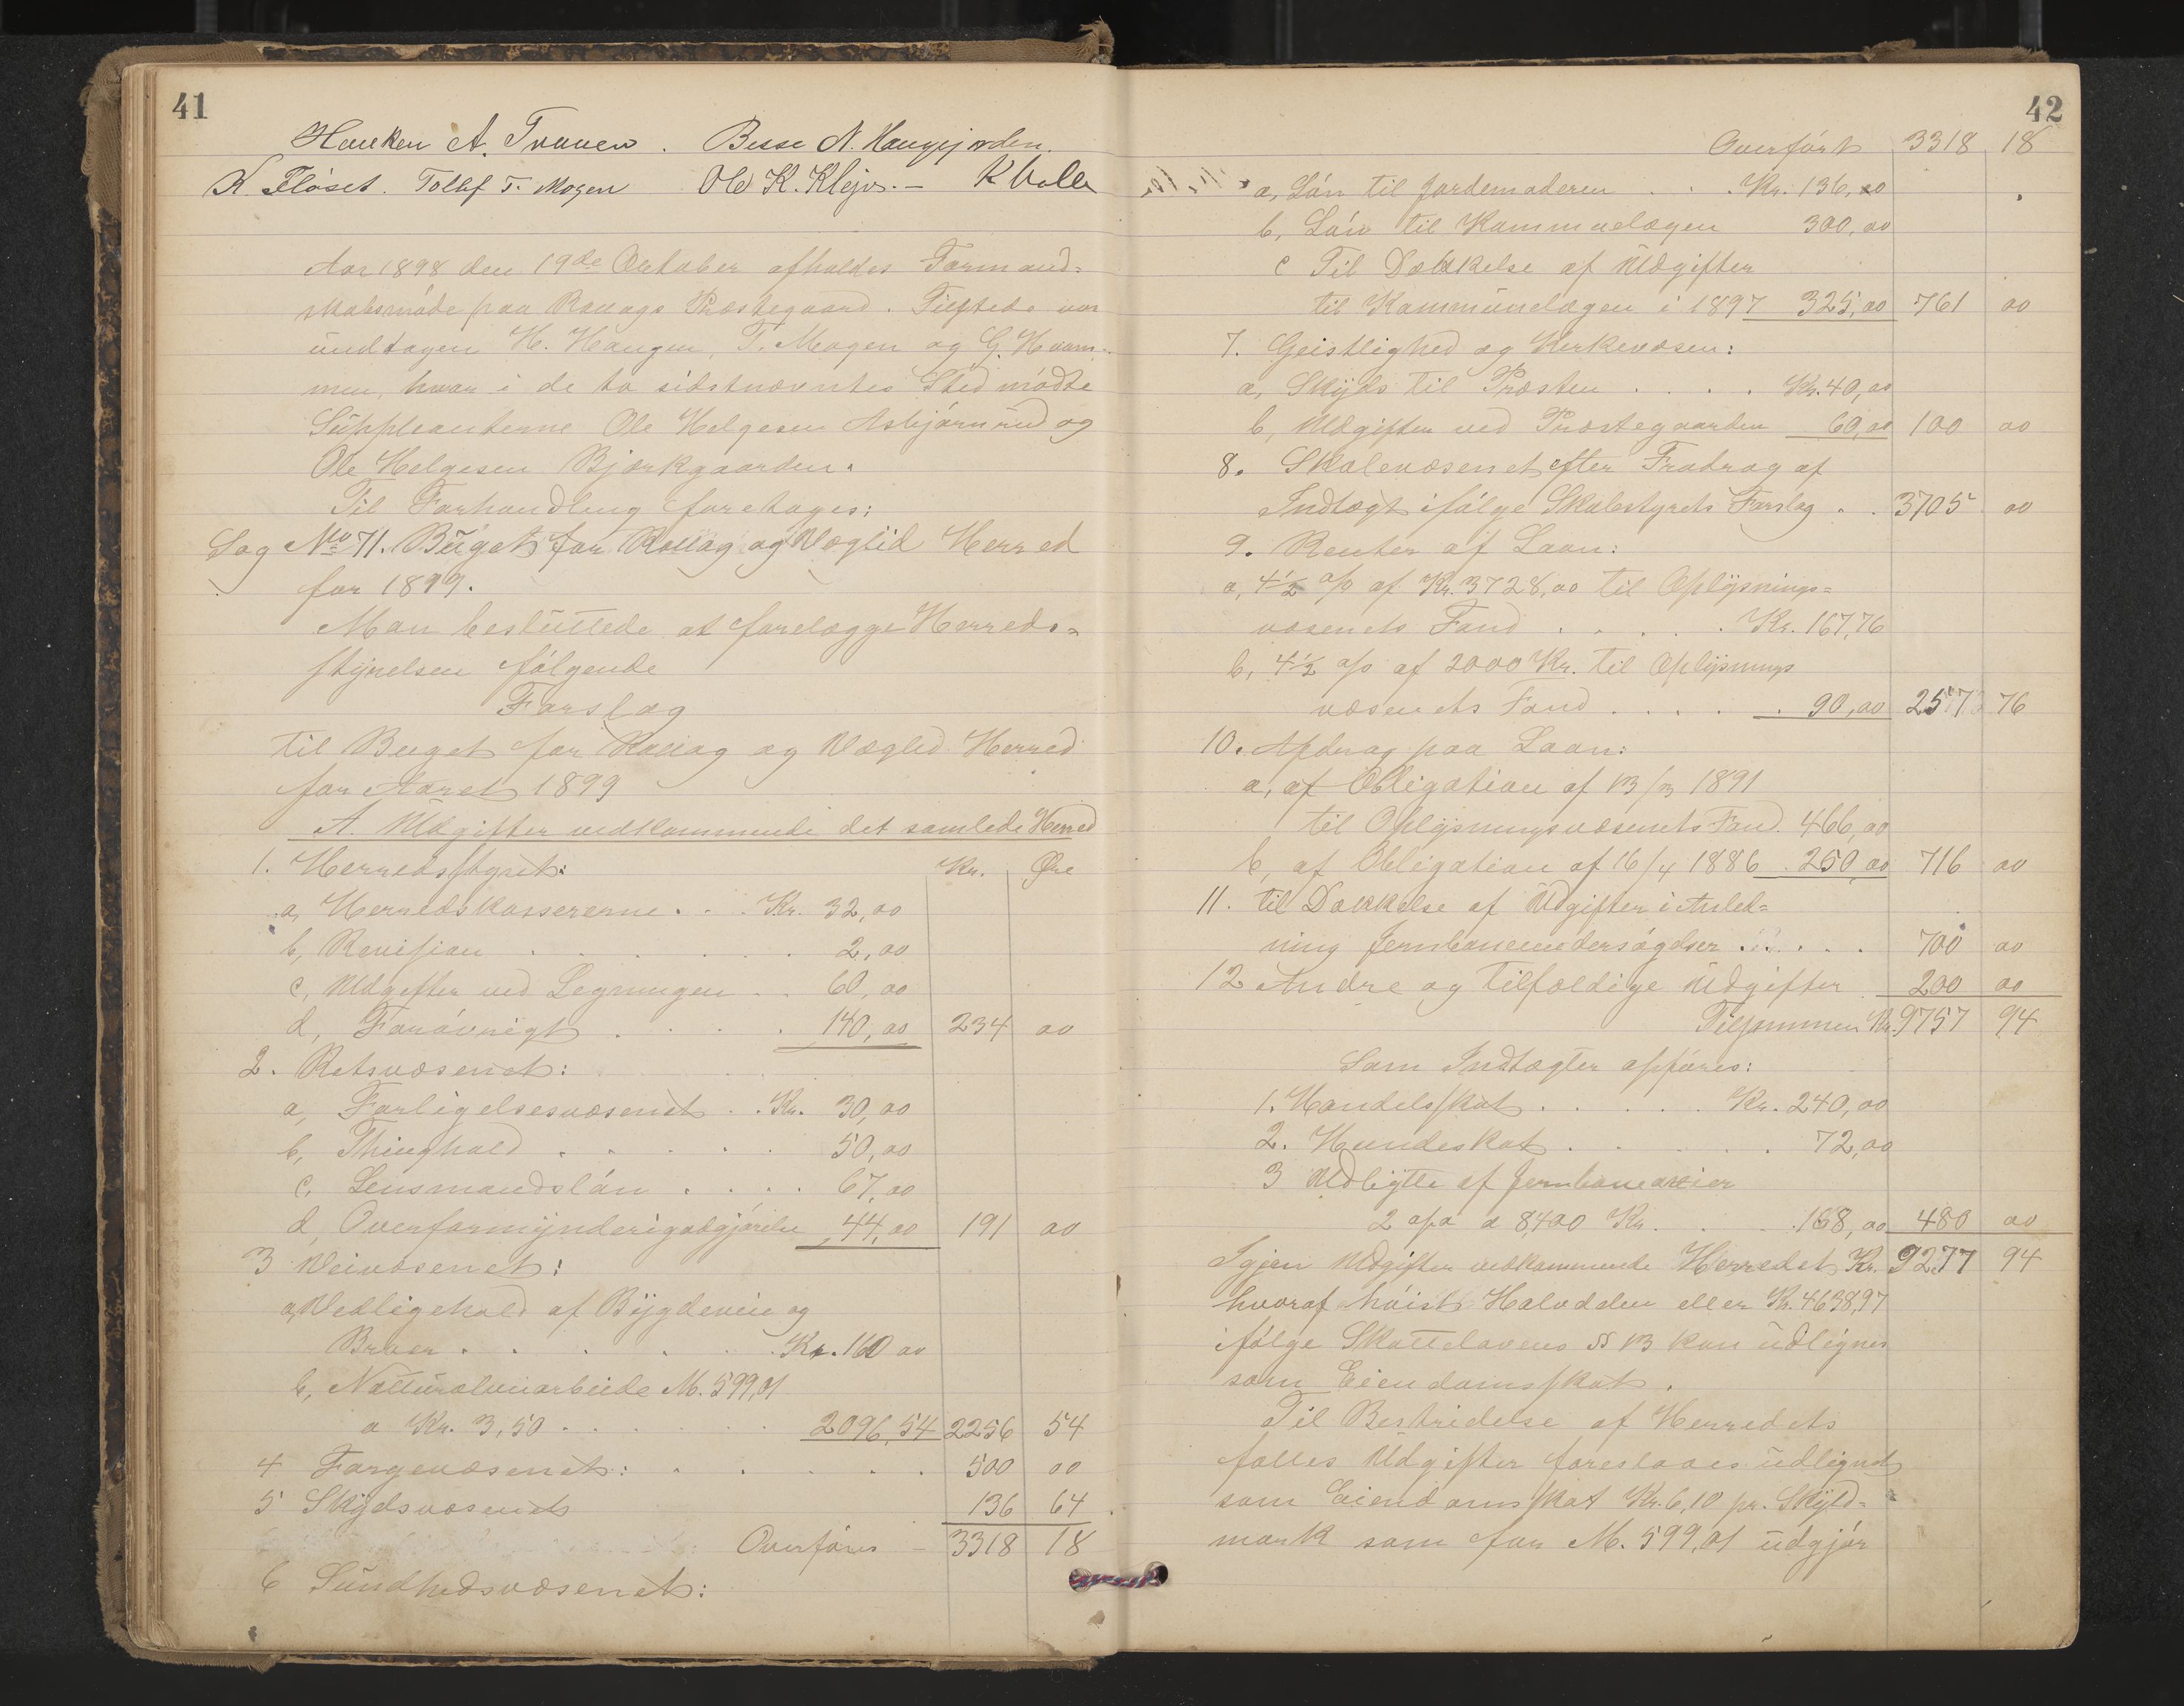 41
Haaken A. Traaen . Besse N. Haugejorden.
K. Fløset. Tollef T. Mogen Ole K. Klejv. — K Valle
Aar 1898 den 19de Oktober afholdes Formand=
skabsmøde paa Rollags Præstegaard. Tilstede var
undtagen H. Haugen, T. Mogen og G. Hvam=
men, hvor i de to sidstnævntes Sted mødte
Suppleanterne Ole Helgesen Asbjørnrud og
Ole Helgesen Bjørkgaarden.
Til Forhandling foretages:
Sag No 71. Buget for Rollag og Væglid Herred
for 1899.
Man besluttede at forelægge Herreds=
styrelsen følgende
Forslag
til Buget for Rollag og Væglid Herred
for Aaret 1899
A. Udgifter vedkommende det samlede Herred
1. Herredsstyret: Kr. Øre
a, Herredskassererne . . . Kr. 32,00
b, Revision . . . . . . 2,00
c, Udgifter ved Legningen . . 60,00
d, Forøvrigt . . . . 140,00 234 00
2. Retsvæsenet:
a, Forligelsesvæsenet . . Kr. 30,00
b, Thinghold . . . . . 50,00
c, Lensmandsløn . . . . 67,00
d, Overformynderigodgjørelse 44,00 191 00
3 Veivæsenet:
a, Vedligehold af Bygdeveie og
Broer . . . . . . Kr. 160 00
b, Naturalveiarbeide M. 599,01
a Kr. 3,50 . . . . . 2096,54 2256 54
4 Fargevæsenet: . . . . . 500 00
5 Skydsvæsenet 136 64
Overføres — 3318 18
6 Sundhedsvæsenet:
42
Overført 3318 18
a, Løn til Jordemoderen . . . Kr. 136,00
b, Løn til Kommunelægen 300,00
c Til Dækkelse af Udgifter
til Kommunelægen i 1897 325,00 761 00
7. Geistlighed og Kirkevæsen:
a, Skyds til Præsten . . . . Kr. 40,00
b, Udgifter ved Præstegaarden 60,00 100 00
8. Skolevæsenet efter Fradrag af
Indtægt ifølge Skolestyrets Forslag . . 3705 00
9. Renter af Laan:
a, 4½ o/o af Kr. 3728,00 til Oplysnings=
væsenets Fond . . . . . Kr. 167,76
b, 4½ o/o af 2000 Kr. til Oplysnings
væsenets Fond . . . . . 90,00 257 76
10. Afdrag paa Laan:
a, af Obligation af 13/3 1891
til Oplysningsvæsenets Fond. 466,00
b, af Obligation af 16/4 1886 . 250,00 716 00
11. til Dækkelse af Udgifter i Anled=
ning Jernbaneundersøgelser . . . . . 700 00
12 Andre og tilfældige Udgifter 200 00
Tilsammen Kr. 9757 94
Som Indtægter opføres:
1. Handelsskat . . . . . Kr. 240,00
2. Hundeskat . . . . . 72,00
3 Udbytte af Jernbaneaxier
2 o/o a 8400 Kr. . . . 168,00 480 00
Igjen Udgifter vedkommende Herredet Kr. 9277 94
hvoraf høist Halvdelen eller Kr. 4638,97
ifølge Skattelovens § 13 kan udlignes
som Eiendomsskat.
Til Bestridelse af Herredets
fælles Udgifter foreslaaes udlignet
som Eiendomsskat Kr. 6,10 pr. Skyld=
mark som for M. 599,01 udgjør